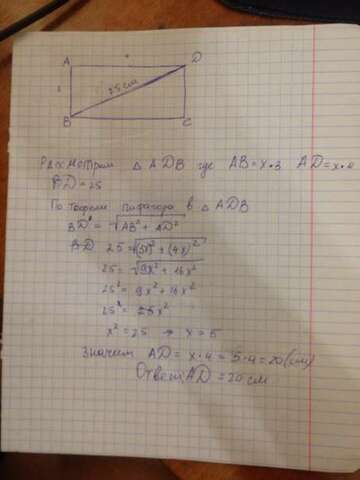 A D
25 cm
B C
Рассмотрим △ ADB где AB = x·3 AD = x·4
BD = 25
По теореме пифагора в △ ADB
BD = √AB² + AD²
25 = √(3x)² + (4x)²
25 = √9x² + 16x²
25² = 9x² + 16x²
25² = 25x²
x² = 25 → x = 5
Значит AD = x·4 = 5·4 = 20 (cm)
Ответ AD = 20 см